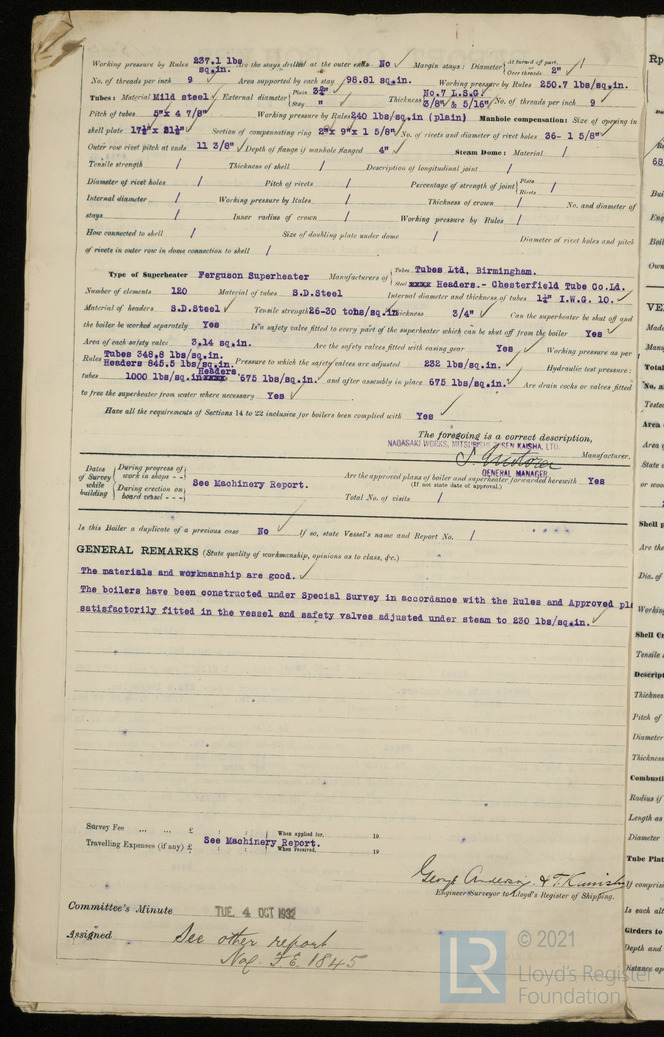 Working pressure by Rules 237.1 lbs sq.in. Are the stays drilled at the outer ends No Margin stays: Diameter { At turned off part, Over threads 2" /
No. of threads per inch 9 Area supported by each stay 98.81 sq.in. Working pressure by Rules 250.7 lbs/sq.in.
Tubes: Material Mild steel External diameter { Plain 3¾" Stay " Thickness { No.7 L.S.G. 3/8" & 5/16" No. of threads per inch 9
Pitch of tubes 5"x 4 7/8" Working pressure by Rules 240 lbs/sq.in (plain) Manhole compensation: Size of opening in
shell plate Section of compensating ring 2"x 9"x 1 5/8" No. of rivets and diameter of rivet holes 36- 1 5/8"
Outer row rivet pitch at ends 11 3/8" Depth of flange if manhole flanged 4" Steam Dome: Material /
Tensile strength / Thickness of shell / Description of longitudinal joint /
Diameter of rivet holes / Pitch of rivets / Percentage of strength of joint { Plate Rivets /
Internal diameter / Working pressure by Rules / Thickness of crown / No. and diameter of
stays / Inner radius of crown / Working pressure by Rules /
How connected to shell / Size of doubling plate under dome / Diameter of rivet holes and pitch
of rivets in outer row in dome connection to shell /
Type of Superheater Ferguson Superheater Manufacturers of { Tubes Tubes Ltd, Birmingham.
Steel xxxx Headers.- Chesterfield Tube Co.Ld.
Number of elements 120 Material of tubes S.D.Steel Internal diameter and thickness of tubes 1¼" I.W.G. 10.
Material of headers S.D.Steel Tensile strength 26-30 tons/sq.in Thickness 3/4" Can the superheater be shut off and
the boiler be worked separately Yes Is a safety valve fitted to every part of the superheater which can be shut off from the boiler Yes
Area of each safety valve 3.14 sq.in. Are the safety valves fitted with easing gear Yes Working pressure as per
Rules Tubes 348.8 lbs/sq.in. Headers 845.5 lbs/sq.in. Pressure to which the safety valves are adjusted 232 lbs/sq.in. Hydraulic test pressure:
tubes 1000 lbs/sq.in Headers xxxxx 675 lbs/sq.in. and after assembly in place 675 lbs/sq.in. Are drain cocks or valves fitted
to free the superheater from water where necessary Yes
Have all the requirements of Sections 14 to 22 inclusive for boilers been complied with Yes
The foregoing is a correct description,
NAGASAKI WORKS, MITSUBISHI ZOSEN KAISHA, LTD.
Manufacturer.
GENERAL MANAGER.
Dates of Survey while building { During progress of work in shops - - During erection on board vessel - - - } See Machinery Report. Are the approved plans of boiler and superheater forwarded herewith Yes
(If not state date of approval.)
Total No. of visits /
Is this Boiler a duplicate of a previous case No If so, state Vessel's name and Report No. /
GENERAL REMARKS (State quality of workmanship, opinions as to class, &c.)
The materials and workmanship are good.
The boilers have been constructed under Special Survey in accordance with the Rules and Approved pl
satisfactorily fitted in the vessel and safety valves adjusted under steam to 230 lbs/sq.in.
Survey Fee ... ... £ : : When applied for, 19
Travelling Expenses (if any) £ : : See Machinery Report. When received, 19
George Anderson & T.
Engineer Surveyor to Lloyd's Register of Shipping.
Committee's Minute TUE. 4 OCT 1932
Assigned See other report
Nag. F.E. 1845
LR © 2021
Lloyd's Register
Foundation